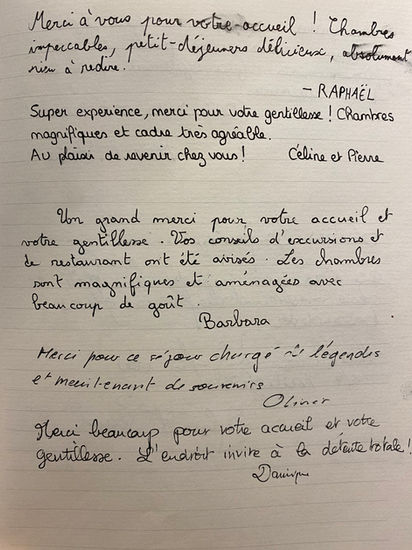 Merci à vous pour votre accueil ! Chambres
impeccables, petit-déjeuners délicieux, absolument
rien à redire.
– RAPHAËL
Super experience, merci pour votre gentillesse ! Chambres
magnifiques et cadre très agréable.
Au plaisir de revenir chez vous ! Céline et Pierre
Un grand merci pour votre accueil et
votre gentillesse. Vos conseils d'excursions et
de restaurant ont été avisés. Les chambres
sont magnifiques et aménagées avec
beaucoup de goût.
Barbara
Merci pour ce séjour chargé de légendes
et maintenant de souvenirs
Olivier
Merci beaucoup pour votre accueil et votre
gentillesse. L'endroit invite à la détente totale !